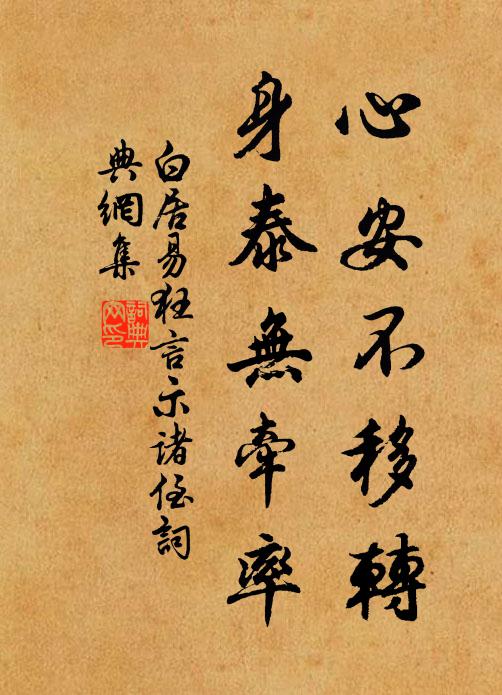 心安不移轉
身泰無牽率
白居易狂言示諸侄詞
典網集
詞典
网印